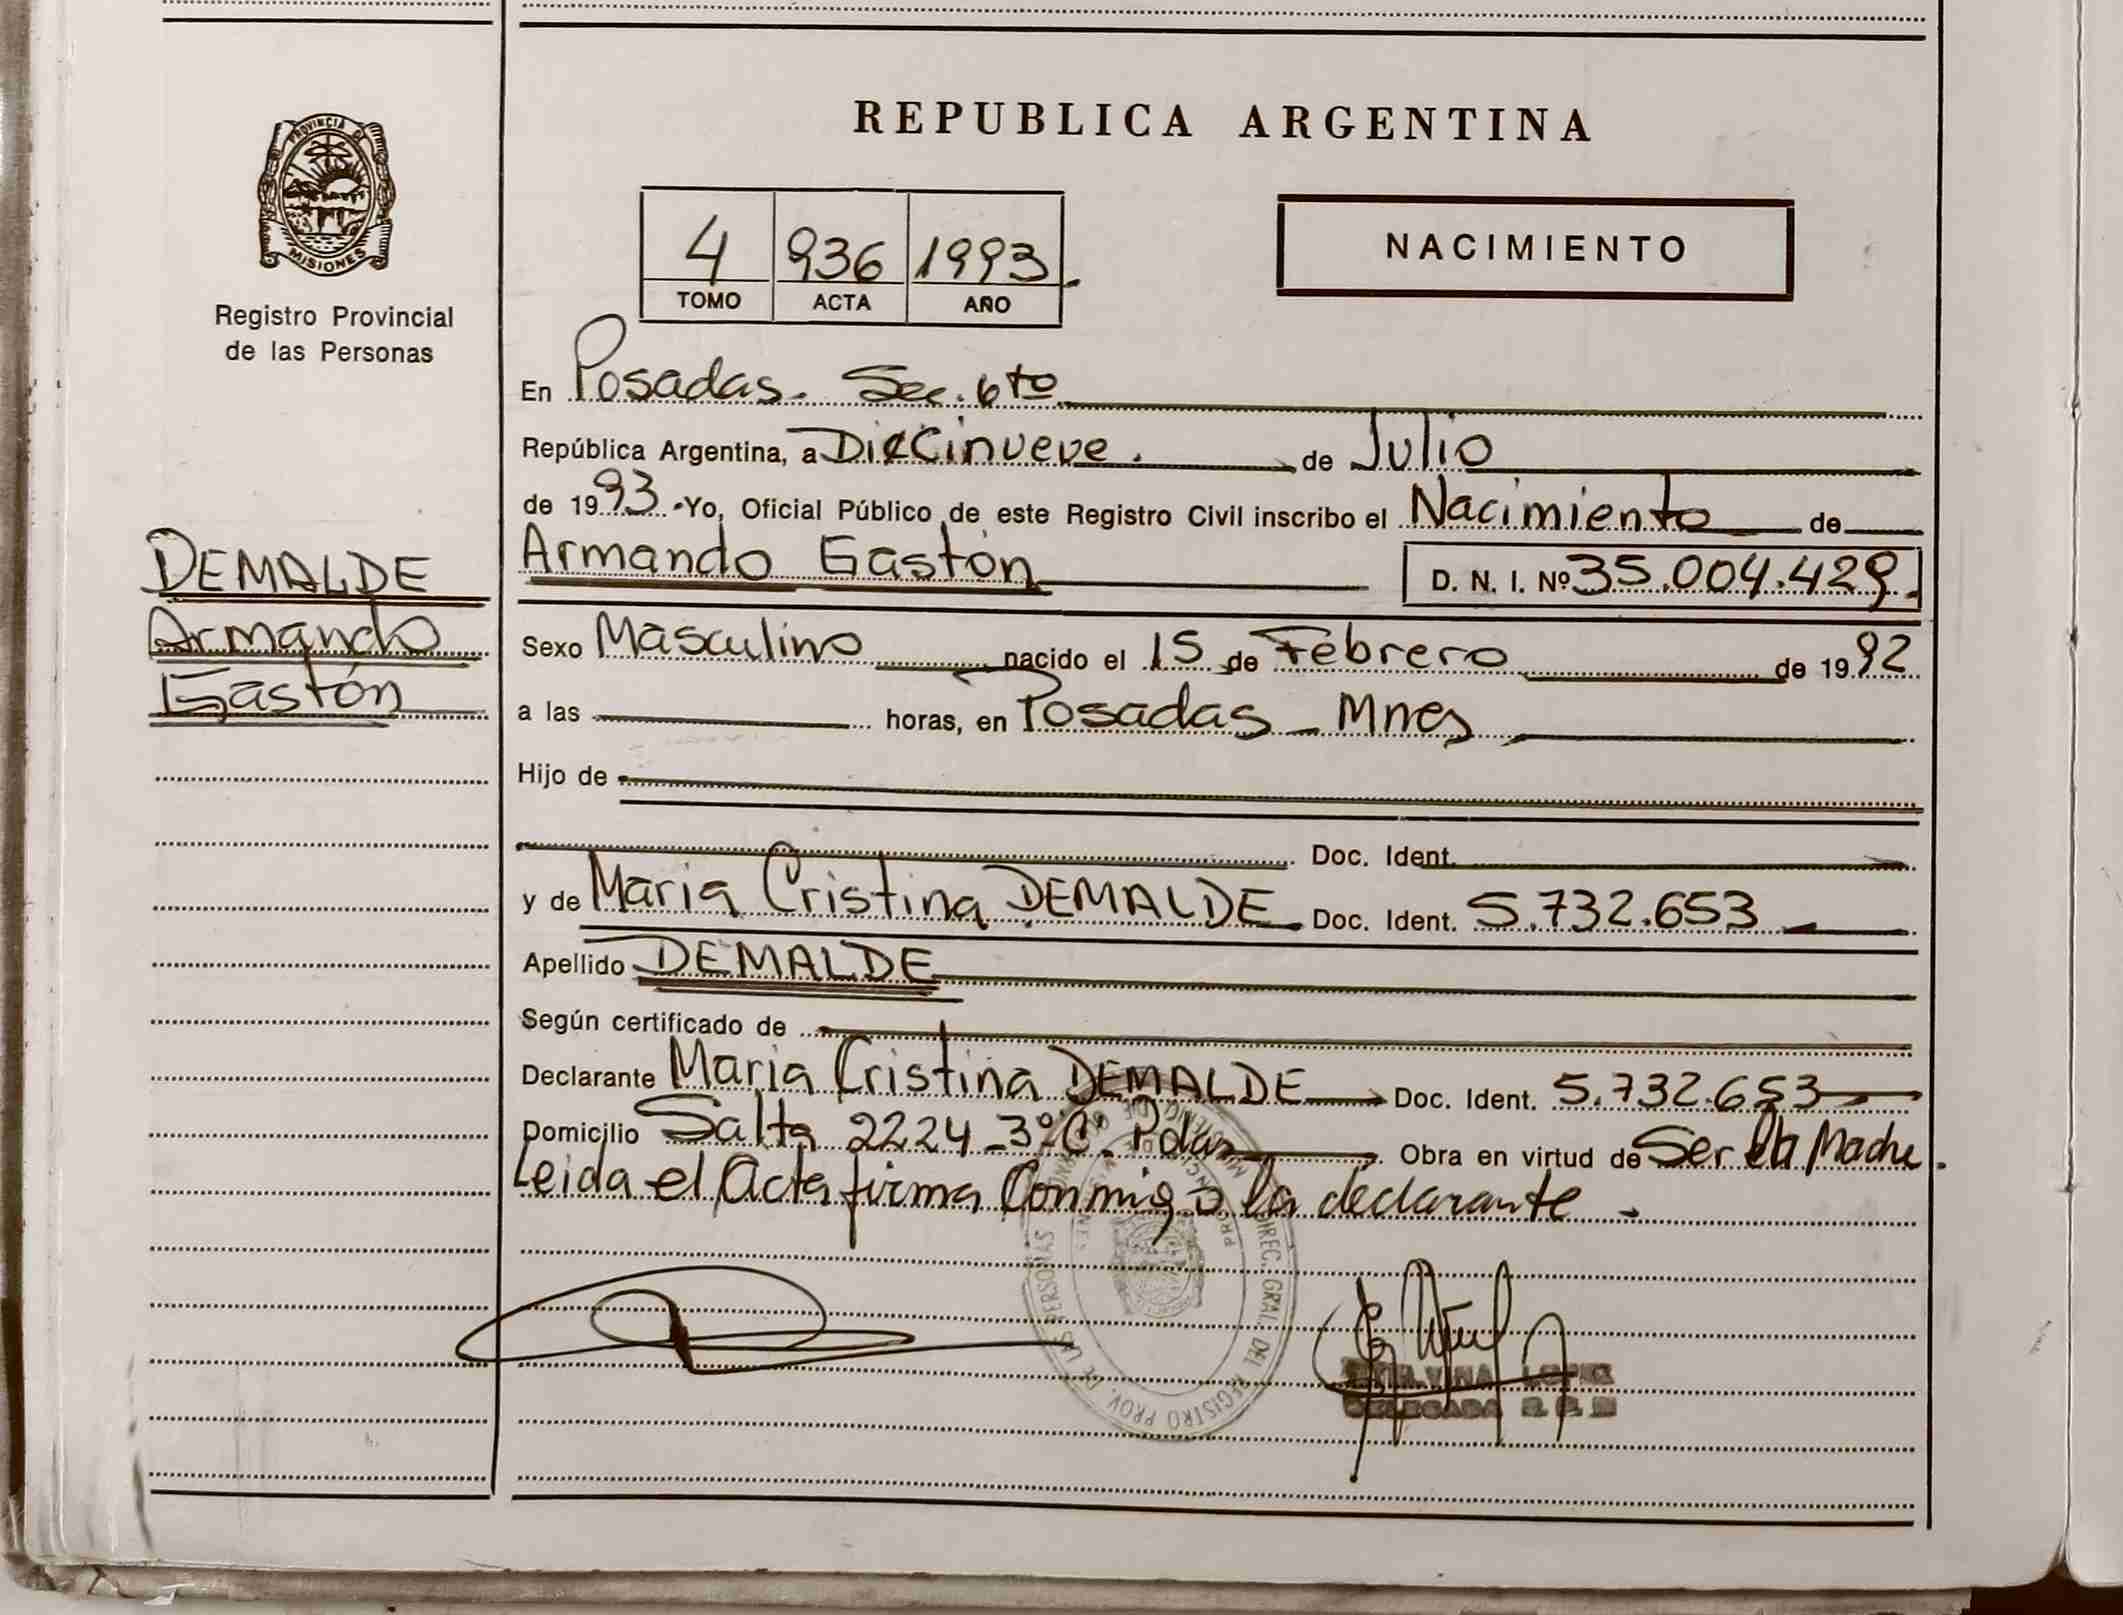 PROVINCIA DE
MISIONES
Registro Provincial
de las Personas
DEMALDE
Armando
Gastón
REPUBLICA ARGENTINA
4 936 1993
TOMO ACTA AÑO
NACIMIENTO
En Posadas. Sec. 6to
República Argentina, a Diecinueve. de Julio
de 1993. Yo, Oficial Público de este Registro Civil inscribo el Nacimiento de
Armando Gastón D. N. I. Nº 35.004.429.
Sexo Masculino nacido el 15 de Febrero de 1992
a las horas, en Posadas _ Mnes
Hijo de
Doc. Ident.
y de Maria Cristina DEMALDE Doc. Ident. 5.732.653
Apellido DEMALDE
Según certificado de
Declarante Maria Cristina DEMALDE Doc. Ident. 5.732.653
Domicilio Salta 2224 _ 3º "C". Pdas Obra en virtud de Ser la Madre.
Leida el Acta firma Conmigo la declarante.
DIREC. GRAL. DEL REGISTRO PROV. DE LAS PERSONAS
LOPEZ
DELEGADA